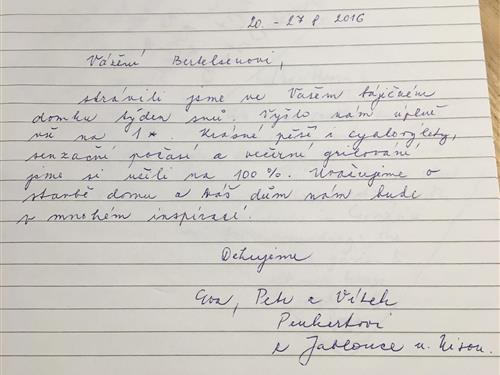 20. - 27 8 2016
Vážení Bertelsenovi,
strávili jsme ve Vašem báječném
domku týden snů. Vyšlo nám úplně
vše na 1*. Krásné pěší i cyklovýlety,
senzační počasí a večerní grilování
jsme si užili na 100%. Uvažujeme o
stavbě domu a Váš dům nám bude
v mnohém inspirací.
Děkujeme
Eva, Petr a Vítek
Peukertovi
z Jablonce n. Nisou.